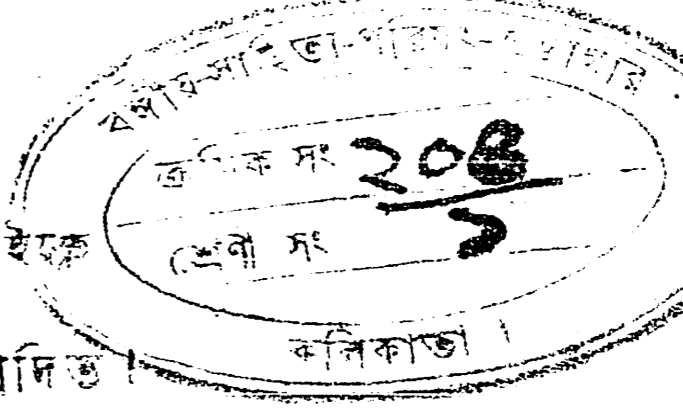 বঙ্গীয়-সাহিত্য-পরিষৎ-গ্রন্থাগার
ক্রমিক সং ২০৪
শ্রেণী সং ১
কলিকাতা।